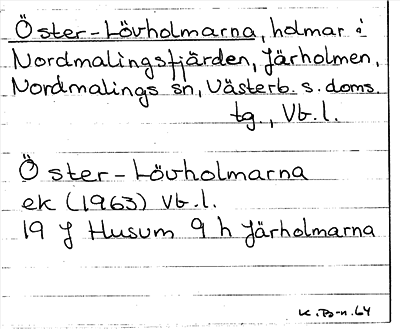 Öster-Lövholmarna, holmar i
Nordmalingsfjärden, Järholmen,
Nordmalings sn, Västerb. s. doms.
tg., Vb.l.
Öster-Lövholmarna
ek (1963) Vb.l.
19 J Husum 9 h Järholmarna
K. Bs-n. 64